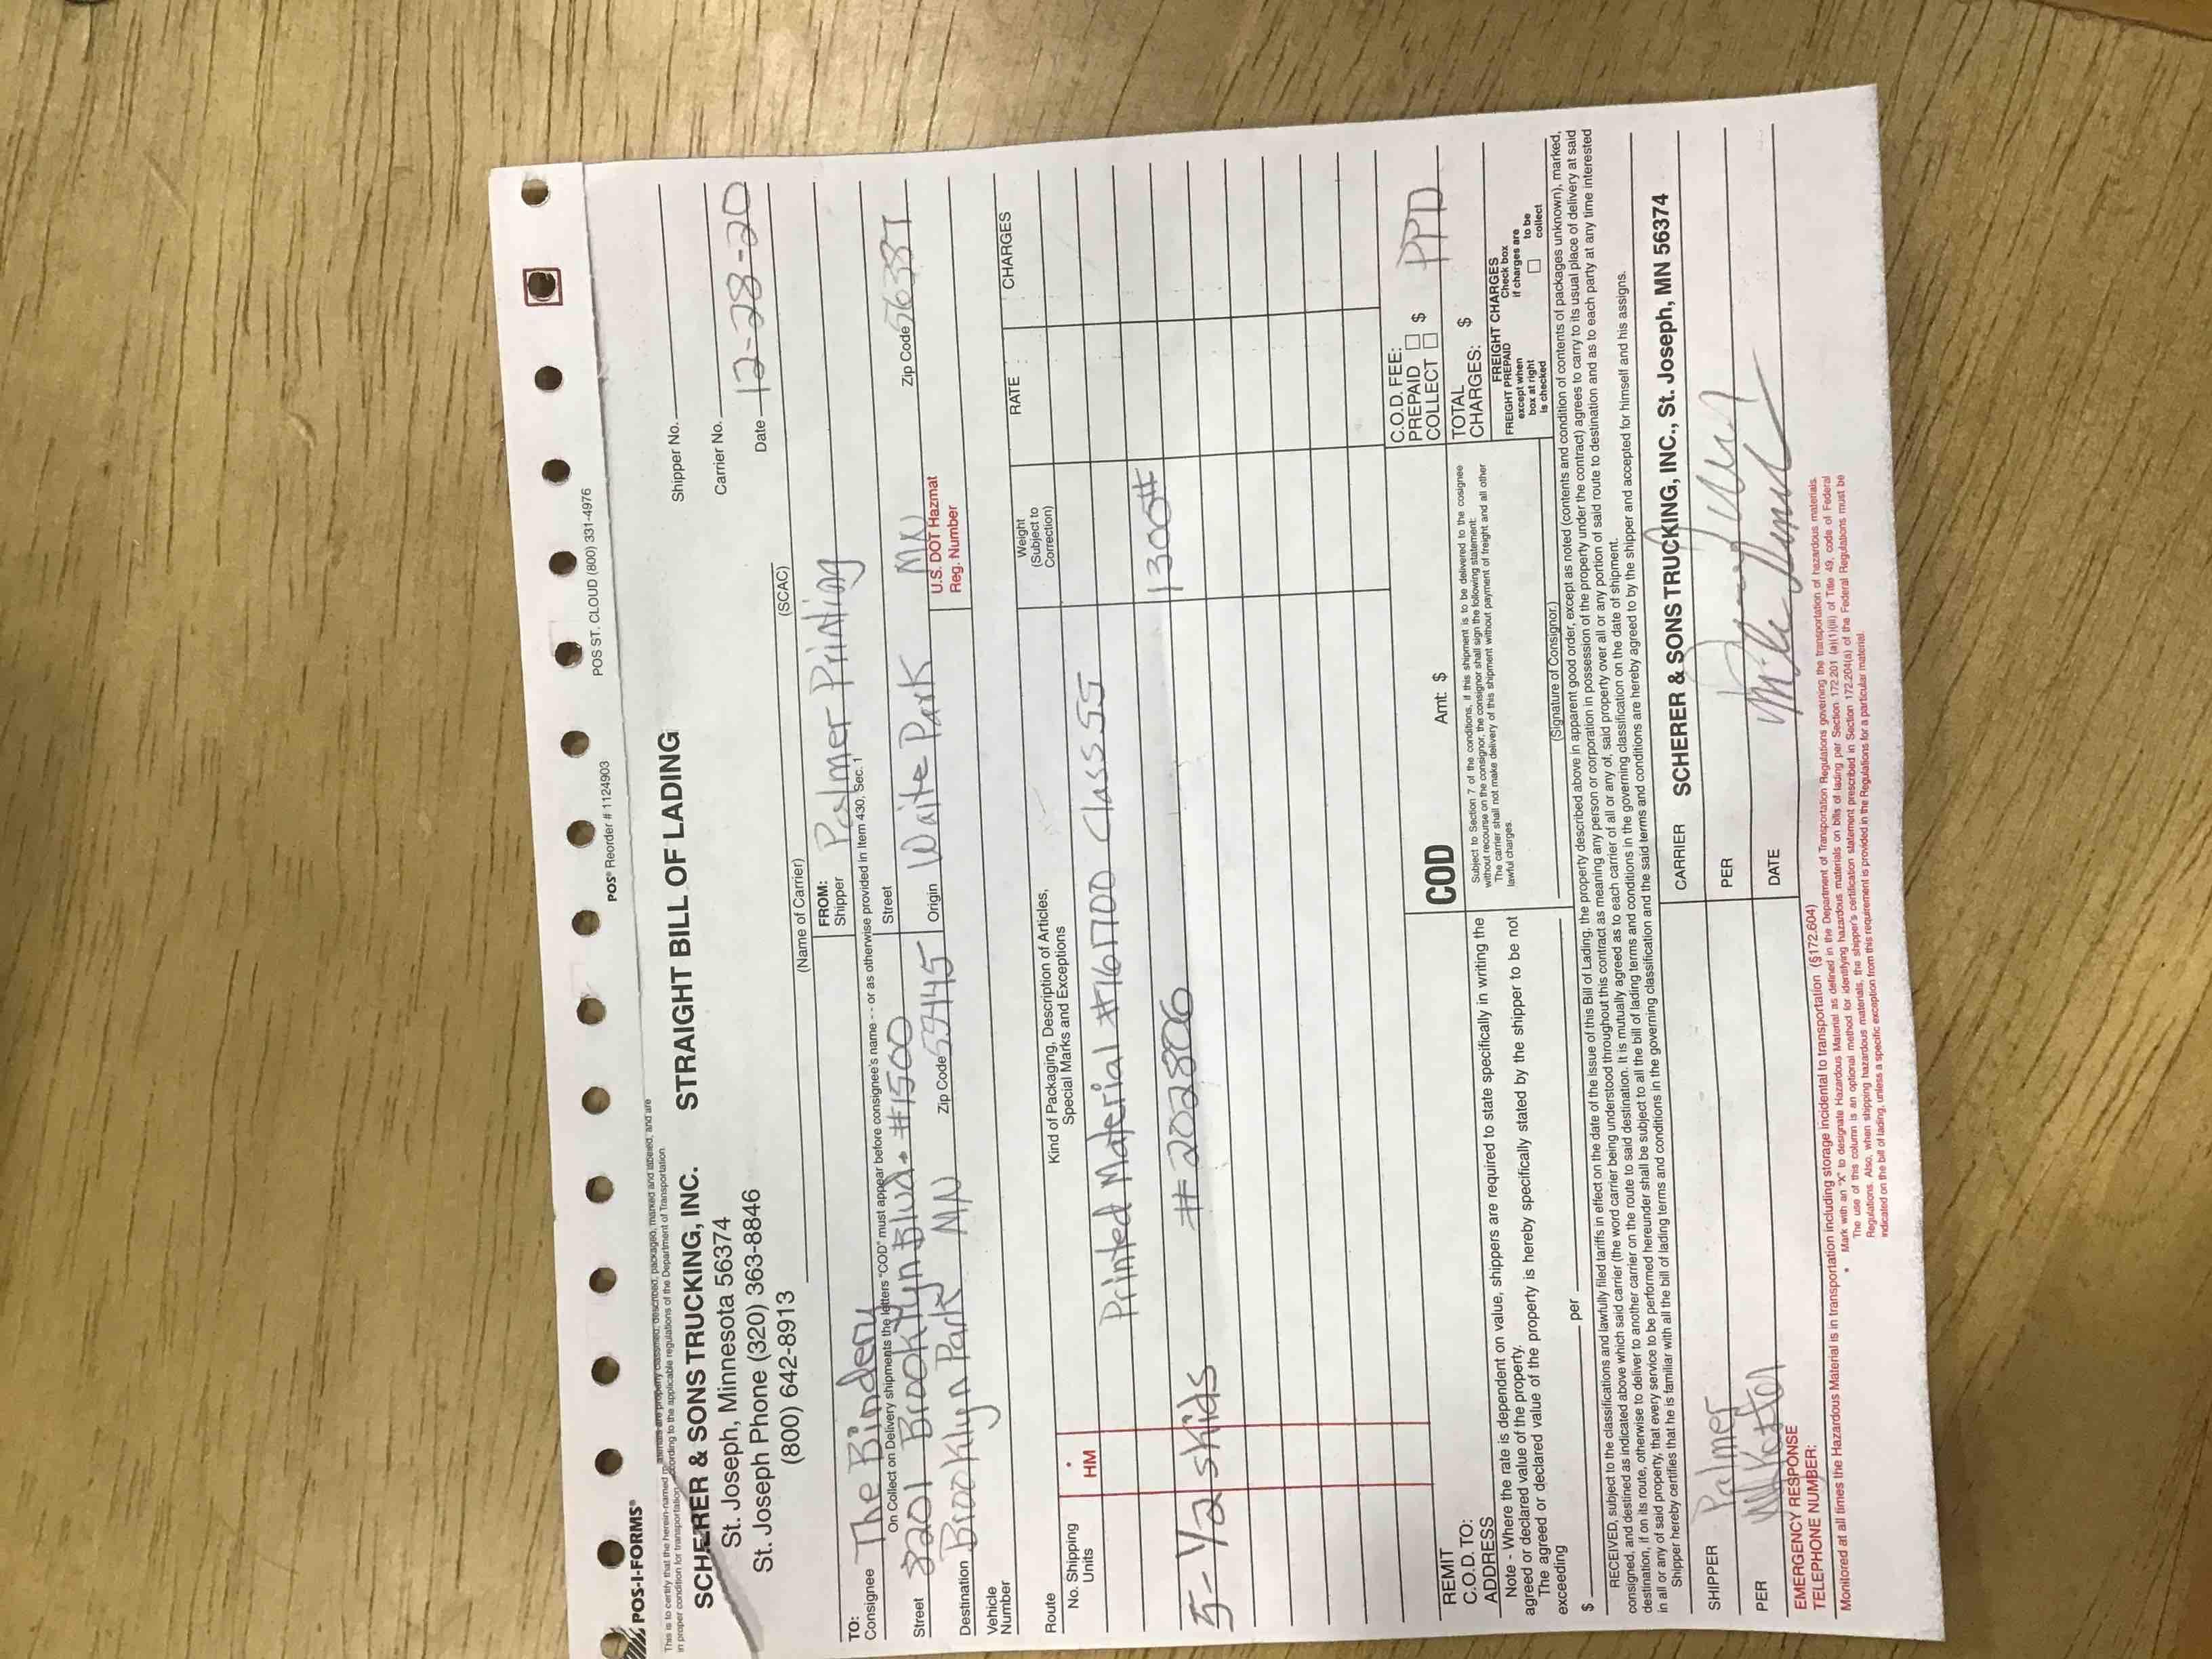 POS-I-FORMS®
POS® Reorder # 1124903
POS ST. CLOUD (800) 331-4976
This is to certify that the herein-named materials are properly classified, described, packaged, marked and labeled, and are
in proper condition for transportation according to the applicable regulations of the Department of Transportation
SCHERER & SONS TRUCKING, INC.
St. Joseph, Minnesota 56374
St. Joseph Phone (320) 363-8846
(800) 642-8913
STRAIGHT BILL OF LADING
Shipper No.
Carrier No.
Date 12-28-20
(Name of Carrier) (SCAC)
TO:
Consignee The Bindery
FROM:
Shipper Palmer Printing
On Collect on Delivery shipments the letters "COD" must appear before consignee's name - - or as otherwise provided in Item 430, Sec. 1
Street 8201 Brooklyn Blvd. #1500
Street
Zip Code 56387
Destination Brooklyn Park MN Zip Code 55445
Origin Waite Park MN
Vehicle
Number
U.S. DOT Hazmat
Reg. Number
Route
No. Shipping
Units
*
HM
Kind of Packaging, Description of Articles,
Special Marks and Exceptions
Weight
(Subject to
Correction)
RATE
CHARGES
Printed Material #161700 Class 55
5-1/2 skids #2028806 1300#
REMIT
C.O.D. TO:
ADDRESS
COD Amt: $
C.O.D. FEE:
PREPAID
COLLECT $
PPD
Note - Where the rate is dependent on value, shippers are required to state specifically in writing the
agreed or declared value of the property.
The agreed or declared value of the property is hereby specifically stated by the shipper to be not
exceeding
$ per
Subject to Section 7 of the conditions, if this shipment is to be delivered to the cosignee
without recourse on the consignor, the consignor shall sign the following statement:
The carrier shall not make delivery of this shipment without payment of freight and all other
lawful charges.
(Signature of Consignor.)
TOTAL
CHARGES: $
FREIGHT CHARGES
FREIGHT PREPAID
except when
box at right
is checked
Check box
if charges are
to be
collect
RECEIVED, subject to the classifications and lawfully filed tariffs in effect on the date of the issue of this Bill of Lading, the property described above in apparent good order, except as noted (contents and condition of contents of packages unknown), marked,
consigned, and destined as indicated above which said carrier (the word carrier being understood throughout this contract as meaning any person or corporation in possession of the property under the contract) agrees to carry to its usual place of delivery at said
destination, if on its route, otherwise to deliver to another carrier on the route to said destination. It is mutually agreed as to each carrier of all or any of, said property over all or any portion of said route to destination and as to each party at any time interested
in all or any of said property, that every service to be performed hereunder shall be subject to all the bill of lading terms and conditions in the governing classification on the date of shipment.
Shipper hereby certifies that he is familiar with all the bill of lading terms and conditions in the governing classification and the said terms and conditions are hereby agreed to by the shipper and accepted for himself and his assigns.
SHIPPER Palmer
CARRIER SCHERER & SONS TRUCKING, INC., St. Joseph, MN 56374
PER
PER
EMERGENCY RESPONSE
TELEPHONE NUMBER:
DATE
Monitored at all times the Hazardous Material is in transportation including storage incidental to transportation (§172.604)
* Mark with an "X" to designate Hazardous Material as defined in the Department of Transportation Regulations governing the transportation of hazardous materials.
The use of this column is an optional method for identifying hazardous materials on bills of lading per Section 172.201 (a)(1)(iii) of Title 49, code of Federal
Regulations. Also, when shipping hazardous materials, the shipper's certification statement prescribed in Section 172.204(a) of the Federal Regulations must be
indicated on the bill of lading, unless a specific exception from this requirement is provided in the Regulations for a particular material.